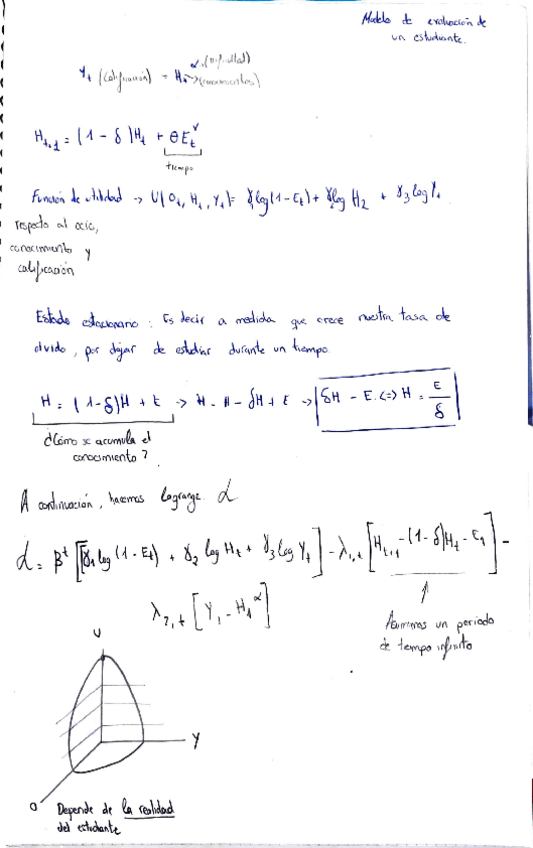 Modelo de evaluación de
un estudiante.
Y₁ (calificación) = H₁
(conocimientos)
Hₜ₊₁ = (1 - δ)Hₜ + θEₜ^γ
tiempo
Función de utilidad → U(Oₜ, Hₜ, Yₜ) = γ₁log(1-Eₜ) + γ₂log H₂ + γ₃ log Yₜ
respecto al ocio,
conocimiento y
calificación
Estado estacionario : Es decir a medida que crece nuestra tasa de
olvido, por dejar de estudiar durante un tiempo
H = (1-δ)H + E → H - H - δH + E → δH - E <=> H = E/δ
¿Cómo se acumula el
conocimiento?
A continuación, hacemos Lagrange L
L = βᵗ [γ₁ log (1 - Eₜ) + γ₂ log Hₜ + γ₃ log Yₜ] - λ₁,ₜ [Hₜ₊₁ - (1-δ)Hₜ - Eₜ] -
λ₂,ₜ [Y₁ - H₁^α]
Asumimos un periodo
de tiempo infinito
U
Y
O
Depende de la realidad
del estudiante